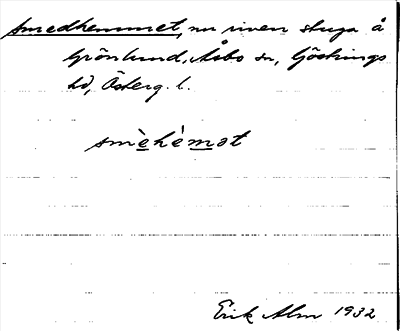 smedhemmet, nu riven stuga å
Grönlund, Åsbo sn, Göstrings
hd, Österg. l.
smèhèmət
Erik Alm 1932